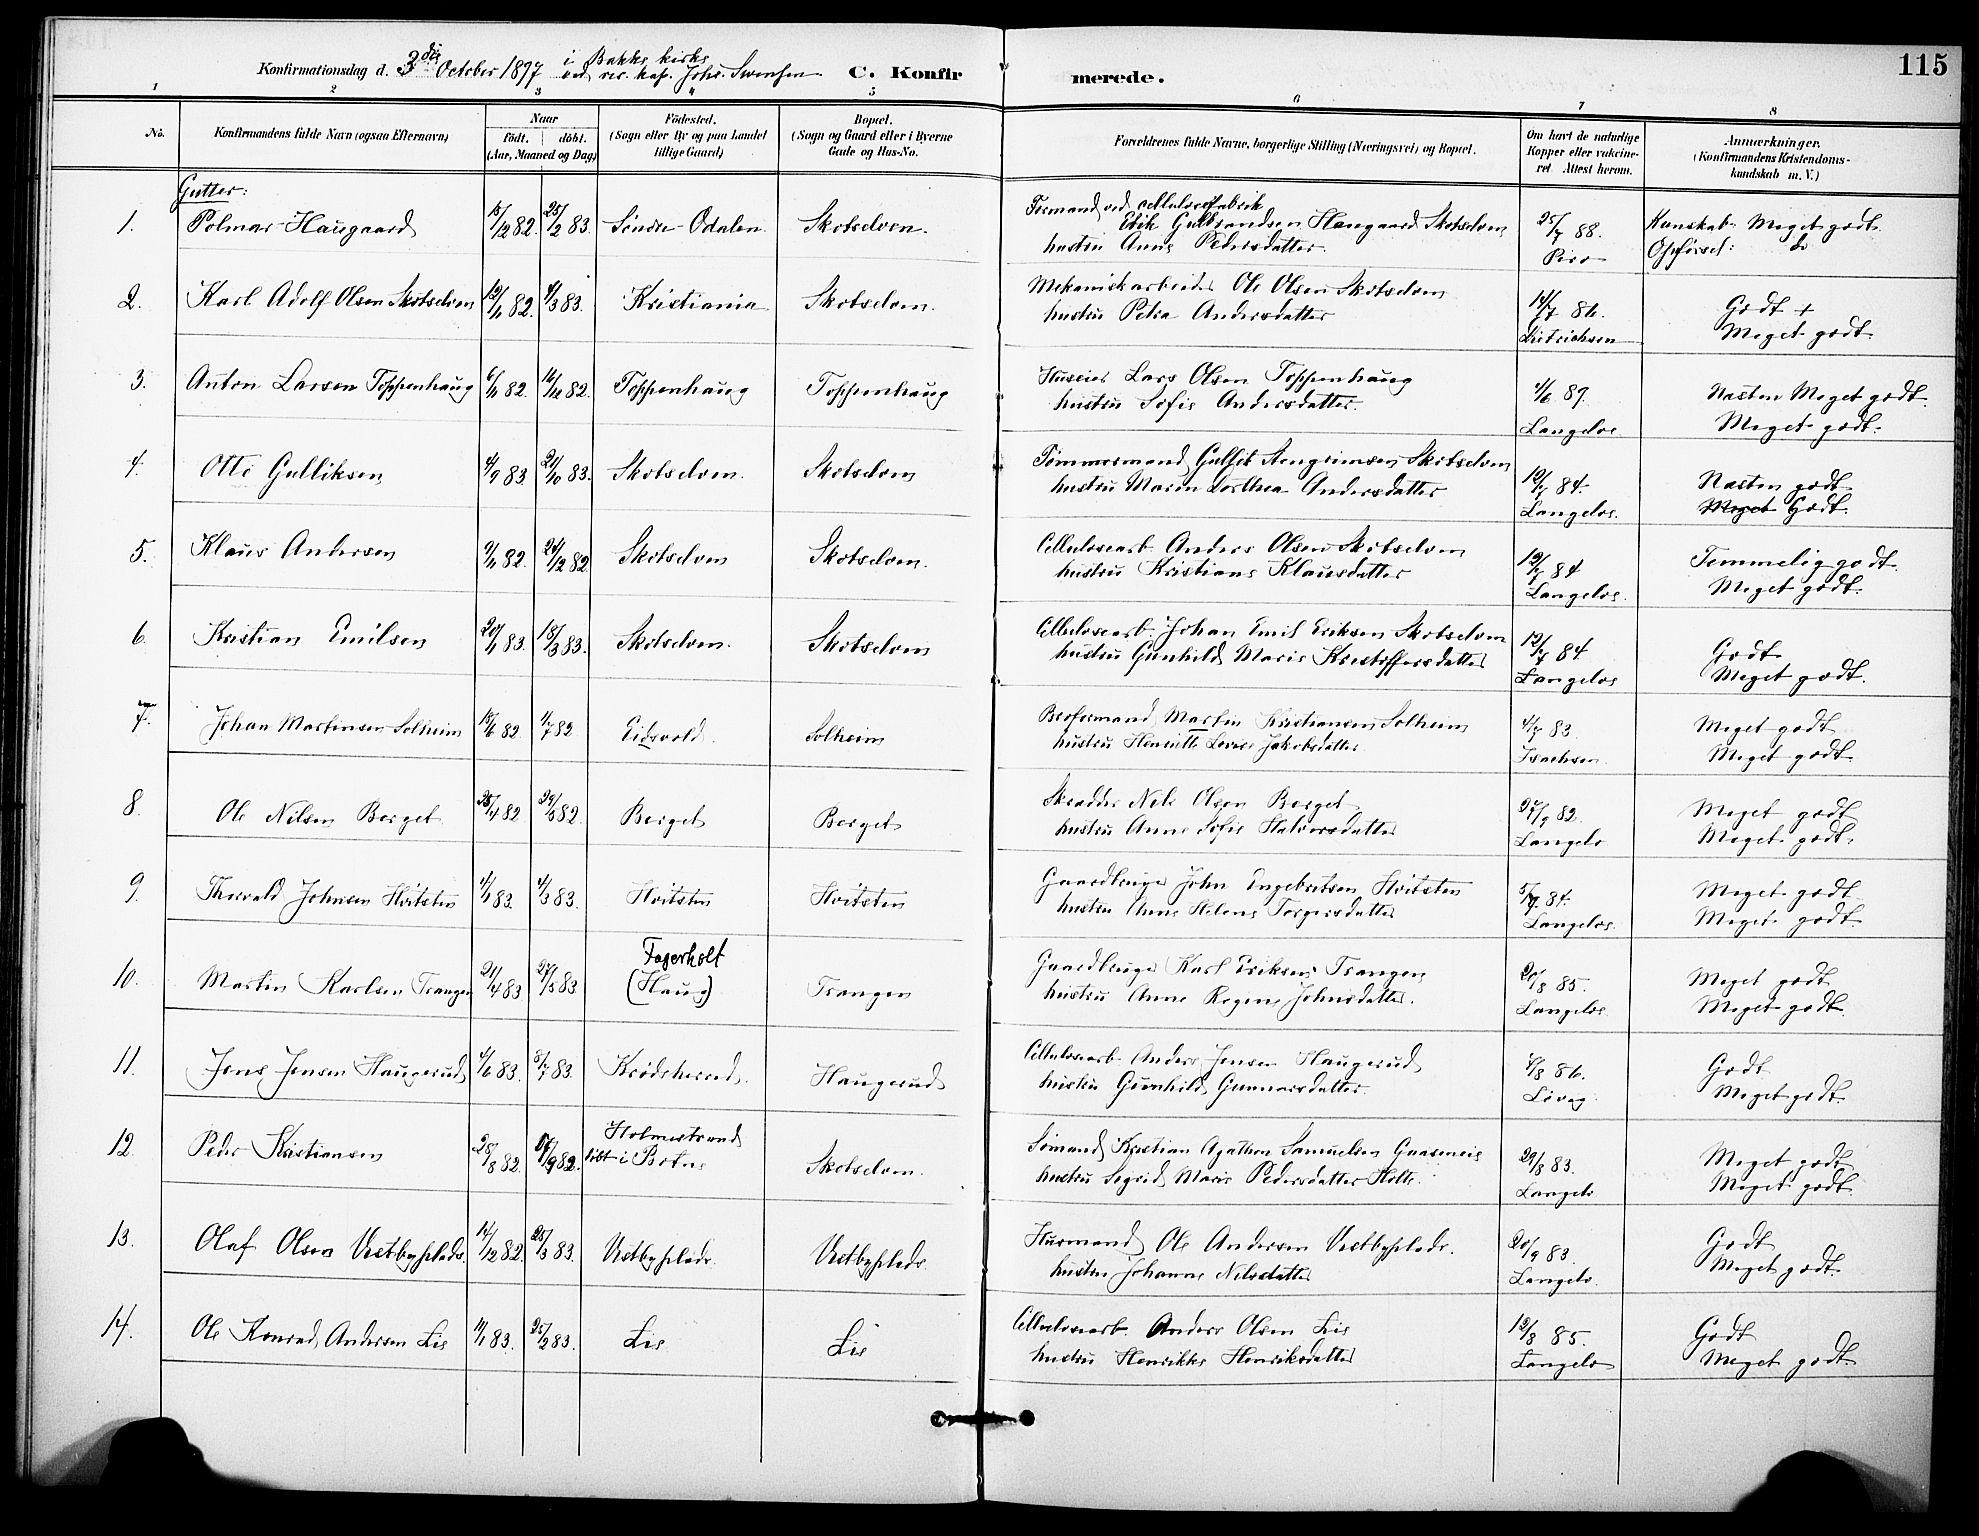 115
Konfirmationsdag d. 3die October 1897 i Bakke kirke
ved res. kap. Johs. Svensen
C. Konfirmerede.
1 2 3 4 5 6 7 8
No.
Konfirmandens fulde Navn (ogsaa Efternavn)
Naar
født. døbt.
(Aar, Maaned og Dag)
Fødested.
(Sogn eller By og paa Landet
tillige Gaard)
Bopæl.
(Sogn og Gaard eller i Byerne
Gade og Hus-No.
Forældrenes fulde Navne, borgerlige Stilling (Næringsvei) og Bopæl.
Om havt de naturlige
Kopper eller vakcine-
ret Attest herom.
Anmærkninger.
(Konfirmandens Kristendoms-
kundskab m. V.)
Gutter:
1. Polmar Haugaard 15/12 82. 25/2 83. Søndre-Odalen Skotselven.
Formand ved cellulosefabrik
Erik Gulbrandsen Haugaard Skotselven
hustru Anne Pedersdatter.
25/7 88.
Piro
Kunskab Meget godt.
Opførsel: do
2. Karl Adolf Olsen Skotselven 12/11 82. 4/3 83. Kristiania Skotselven.
Mekaniskarbeider Ole Olsen Skotselven
hustru Petra Andersdatter
14/7 86.
Dietrichsen
Godt +
Meget godt.
3. Anton Larsen Toppenhaug 6/11 82. 16/12 82. Toppenhaug Toppenhaug
Huseier Lars Olsen Toppenhaug
hustru Sofie Andersdatter.
4/6 89.
Langeloe
Næsten Meget godt.
Meget godt.
4. Otto Gulliksen 4/9 83 21/10 83. Skotselven. Skotselven
Tømmermand Gullik Stengrimsen Skotselven
hustru Maren Dorthea Andersdatter
12/7 84.
Langeloe.
Næsten godt
Meget Godt.
5. Klaus Andersen 9/11 82. 24/12 82 Skotselven Skotselven.
Cellulosearb. Anders Olsen Skotselven
hustru Kristiane Klausdatter
12/7 84
Langeloe.
Temmelig godt.
Meget godt.
6. Kristian Emilsen 20/1 83. 18/3 83. Skotselven. Skotselven
Cellulosearb. Johan Emil Eriksen Skotselven
hustru Gunhild Marie Kristoffersdatter
12/7 84.
Langeloe
Godt
Meget godt.
7. Johan Martinsen Solheim 15/6 82 1/7 82. Eidsvold. Solheim
Broformand Martin Kristiansen Solheim
hustru Henriette Lovise Jakobsdatter.
4/7 83.
Isachsen
Meget godt
Meget godt.
8. Ole Nilsen Berget 25/4 82 29/5 82. Berget Berget
Skrædder Nels Olsen Berget
hustru Anne Sofie Halvorsdatter
27/9 82.
Langelo
Meget godt
Meget godt.
9. Thorvald Johnsen Hvitsten 4/1 83. 4/3 83. Hvitsten Hvitsten
Gaardbruger John Engebritsen Hvitsten
hustru Anne Helene Torgersdatter
5/7 84.
Langeloe.
Meget godt.
Meget godt
10. Martin Karlsen Trangen 21/4 83 27/5 83 Fagerholt
(Haug) Trangen
Gaardbruger Karl Eriksen Trangen
hustru Anne Regine Johnsdatter.
20/8 85.
Langeloe
Meget godt
Meget godt.
11. Jens Jensen Haugerud 4/6 83. 8/7 83. Krødsherred. Haugerud
Cellulosearb. Anders Jensen Haugerud
hustru Gunhild Gunnarsdatter.
4/8 86.
Løvag
Godt
Meget godt.
12. Peder Kristiansen 28/8 82. 17/9 82. Holmestrand
døbt i Botne Skotselven.
Sømand Kristian Agathon Samuelsen Gaasmeie
hustru Sigrid Marie Pedersdatter Holte.
29/8 83.
Langelo
Meget godt
Meget godt.
13. Olaf Olsen Vestbyplads. 14/12 82. 25/3 83. Vestbyplads. Vestbyplads.
Husmand Ole Andersen Vestbyplads.
hustru Johanne Nilsdatter
20/9 83.
Langelo.
Godt
Meget godt.
14. Ole Konrad Andersen Lie 11/1 83. 25/2 83. Lie Lie
Cellulosearb. Anders Olsen Lie
hustru Henrikke Henriksdatter
13/8 85.
Langelo
Godt
Meget godt.